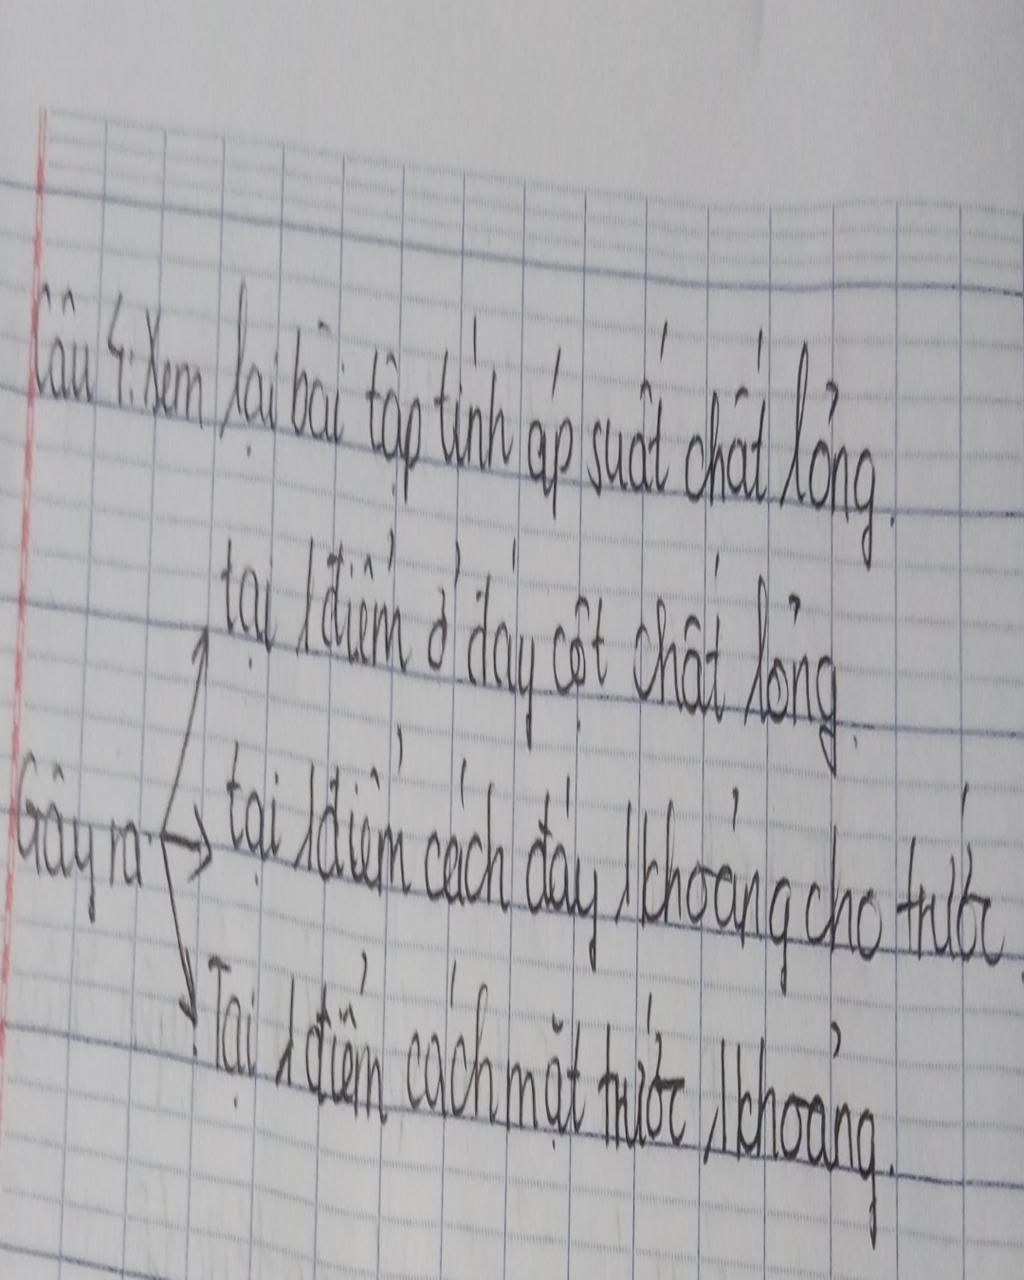 Câu 4: Xem lại bài tập tính áp suất chất lỏng.
tại 1 điểm ở đáy cột chất lỏng.
Gây ra tại 1 điểm cách đáy 1 khoảng cho trước.
Tại 1 điểm cách mặt trước 1 khoảng.